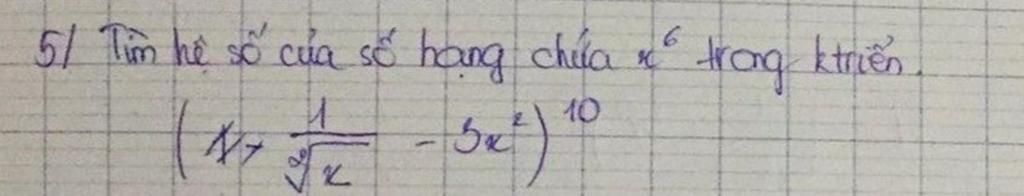 5/ Tìm hệ số của số hạng chứa x⁶ trong ktriển.
(1 + 1/∛x - 3x²)¹⁰